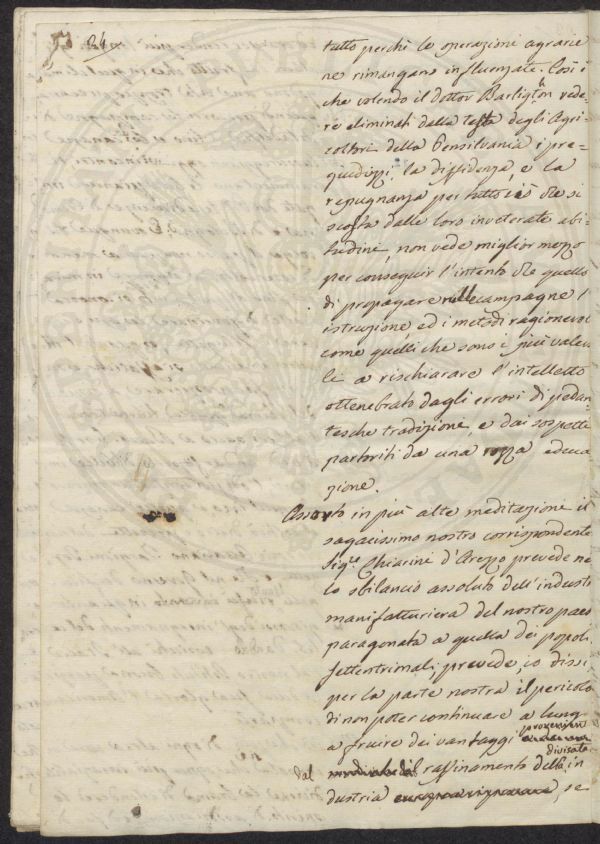 24
tutto perchè le operazioni agrarie
ne rimangano influenzate. Così è
che volendo il Dottor Barligton vede-
re eliminati dalla testa degli Agri-
coltori della Pensilvania i pre-
giudizzi, la diffidenza, e la
repugnanza per tutto ciò che si
scosta dalle loro inveterate abi-
tudini, non vede miglior mezzo
per conseguir l'intento che quello
di propagare nelle campagne l'
istruzione ed i metodi ragionevoli
come quelli che sono i più valevo
li a rischiarare l'intelletto
ottenebrato dagli errori di pedan-
tesche tradizione, e dai sospetti
partoriti da una rozza educa
zione.
Assorto in più alte meditazione il
sagacissimo nostro corrispondente
Sigre Chiarini d'Arezzo prevede ne
lo sbilancio assoluto dell'industria
manifatturiera del nostro paese
paragonata a quella dei popoli
settentrionali; prevede, io dissi
per la parte nostra il pericolo
di non poter continuare a lung
a fruire dei vantaggi provenienti
divisato
dal raffinamento della in
dustria, se